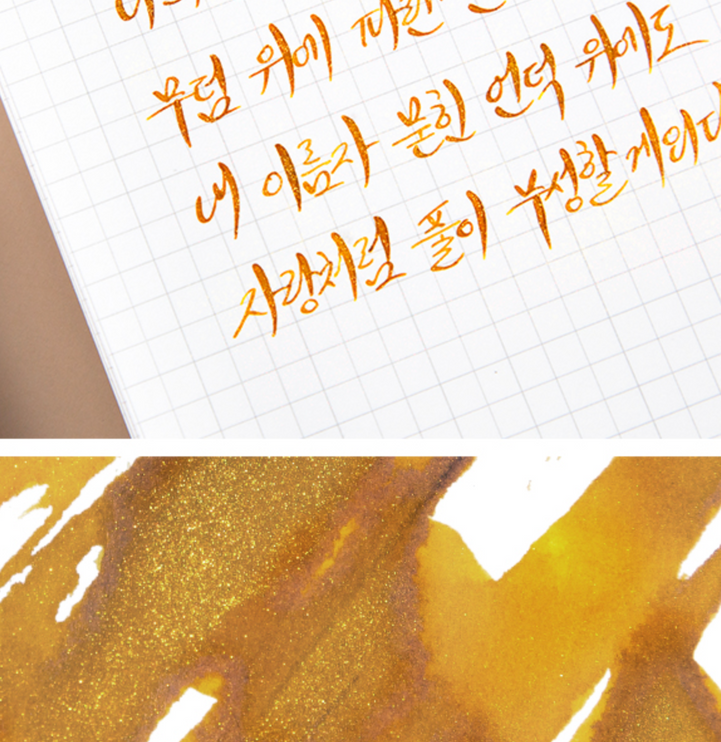 무덤 위에 파란
내 이름자 묻힌 언덕 위에도
자랑처럼 풀이 무성할 게외다